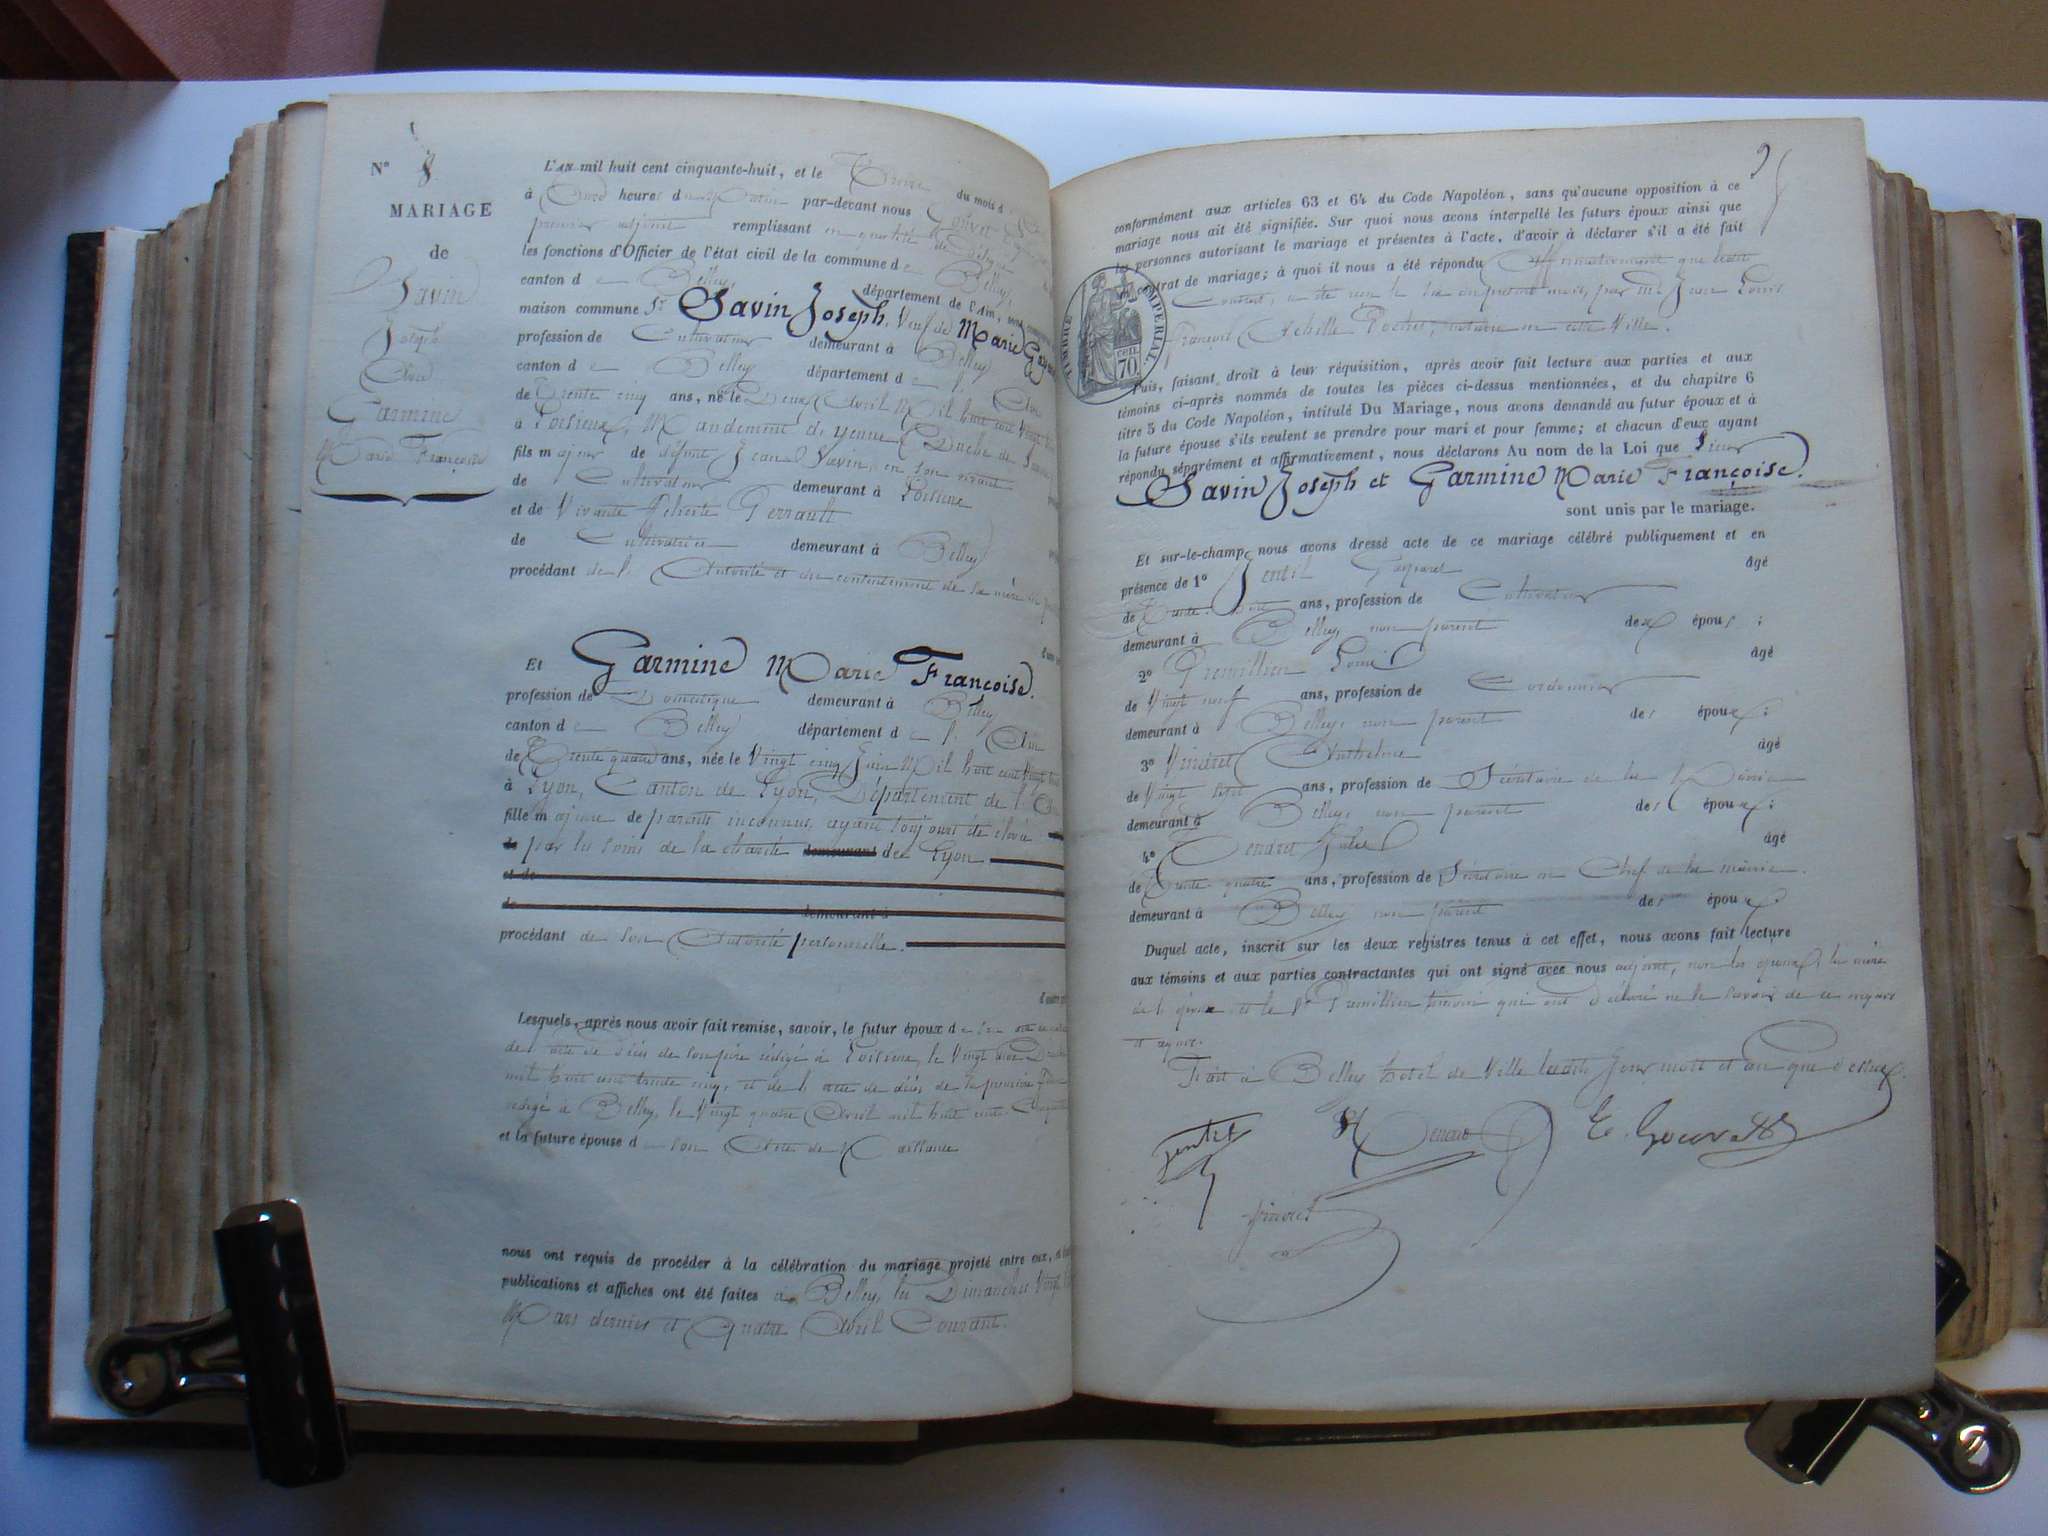 N° 8
MARIAGE
de
Savin
Joseph
Avec
Garmine
Marie Françoise
L'AN mil huit cent cinquante-huit, et le Treize du mois d
à Onze heures du Matin par-devant nous
premier adjoint remplissant en qualité de délégué
les fonctions d'Officier de l'état civil de la commune de Belley,
canton de Belley, département de l'Ain,
maison commune Sr Savin Joseph, Veuf de Marie
profession de Cultivateur demeurant à Belley
canton de Belley département de l'Ain
de Trente cinq ans, né le Deux Avril Mil huit cent vingt
à Loisieux, Mandement d'yenne, Duché de
fils majeur de défunt Jean Savin, en son vivant
de Cultivateur demeurant à Loisieux
et de Vivante Perrault
de Cultivatrice demeurant à Belley
procédant de l'Autorité et du contentement de sa mère ici
Et Garmine Marie Françoise.
profession de Domestique demeurant à Belley
canton de Belley département de l'Ain
de Trente quatre ans, née le Vingt cinq Juin Mil huit cent vingt
à Lyon, Canton de Lyon, Département
fille majeure de parents inconnus, ayant toujours été élevée
de par les soins de la charité demeurant de Lyon
et de
de demeurant à
procédant de son Autorité personnelle.
Lesquels, après nous avoir fait remise, savoir, le futur époux de son acte
de l'acte de décès de son père rédigé à Loisieux, le Vingt
mil huit cent trente cinq, et de l'acte de décès de sa première
rédigé à Belley, le Vingt quatre Avril mil huit cent Cinquante
et la future épouse de son Acte de Naissance
nous ont requis de procéder à la célébration du mariage projeté entre eux,
publications et affiches ont été faites à Belley, les Dimanches Vingt
Mars dernier et Quatre Avril Courant.
9
conformément aux articles 63 et 64 du Code Napoléon, sans qu'aucune opposition à ce
mariage nous ait été signifiée. Sur quoi nous avons interpellé les futurs époux ainsi que
les personnes autorisant le mariage et présentes à l'acte, d'avoir à déclarer s'il a été fait
un contrat de mariage; à quoi il nous a été répondu affirmativement que ledit
Contrat, a été reçu le six du présent mois, par me Jean Louis
François Achille Rochet, notaire en cette Ville.
TIMBRE IMPERIAL
CEN. 70.
Puis, faisant droit à leur réquisition, après avoir fait lecture aux parties et aux
témoins ci-après nommés de toutes les pièces ci-dessus mentionnées, et du chapitre 6
titre 5 du Code Napoléon, intitulé Du Mariage, nous avons demandé au futur époux et à
la future épouse s'ils veulent se prendre pour mari et pour femme; et chacun d'eux ayant
répondu séparément et affirmativement, nous déclarons Au nom de la Loi que Sieur
Savin Joseph et Garmine Marie Françoise.
sont unis par le mariage.
Et sur-le-champ nous avons dressé acte de ce mariage célébré publiquement et en
présence de 1° Gentil Gaspard âgé
de Trente ans, profession de Cultivateur
demeurant à Belley, non parent des époux ;
2° Premillieu Louis âgé
de Vingt neuf ans, profession de Cordonnier
demeurant à Belley, non parent des époux ;
3° Anthelme âgé
de Vingt sept ans, profession de Secrétaire de la Mairie
demeurant à Belley, non parent des époux ;
4° âgé
de Trente quatre ans, profession de Secrétaire en Chef de la mairie.
demeurant à Belley non parent des époux.
Duquel acte, inscrit sur les deux registres tenus à cet effet, nous avons fait lecture
aux témoins et aux parties contractantes qui ont signé avec nous adjoint, non les époux, la mère
de l'époux et le Sr Premillieu témoin qui ont déclaré ne le savoir de ce enquis
et requis.
Fait à Belley hotel de Ville lesdits jour, mois et an que dessus.
Gentil